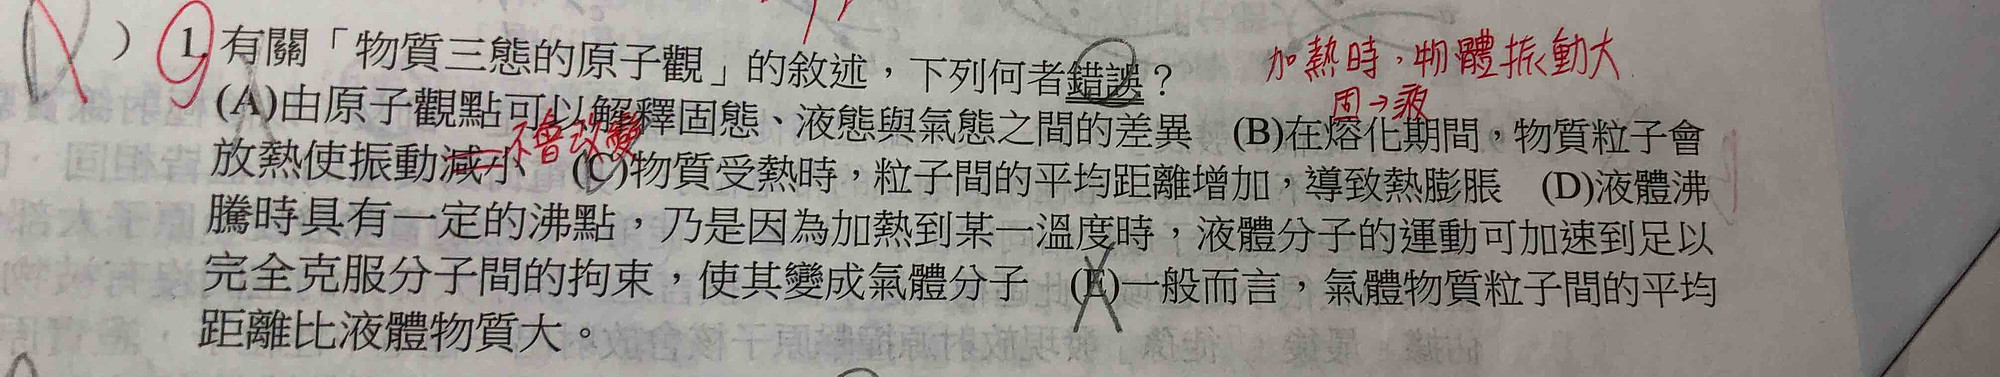 ) 1. 有關「物質三態的原子觀」的敘述，下列何者錯誤？
加熱時，物體振動大
固→液
(A)由原子觀點可以解釋固態、液態與氣態之間的差異 (B)在熔化期間，物質粒子會
不會改變
放熱使振動減小 (C)物質受熱時，粒子間的平均距離增加，導致熱膨脹 (D)液體沸
騰時具有一定的沸點，乃是因為加熱到某一溫度時，液體分子的運動可加速到足以
完全克服分子間的拘束，使其變成氣體分子 (E)一般而言，氣體物質粒子間的平均
距離比液體物質大。